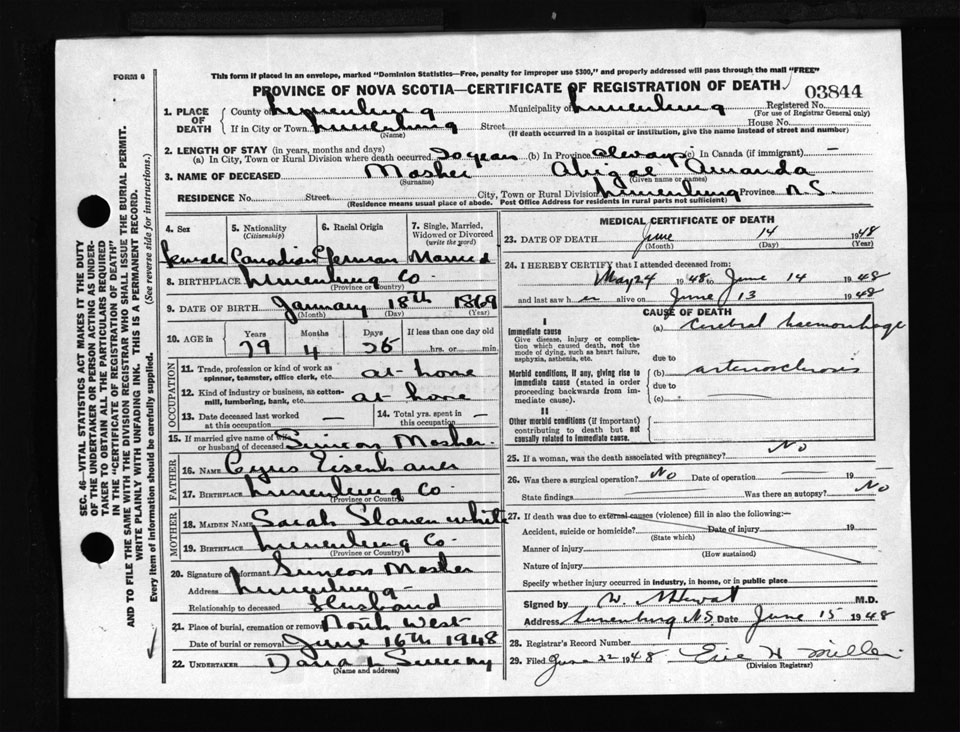 FORM 6
This form if placed in an envelope, marked "Dominion Statistics—Free, penalty for improper use $300," and properly addressed will pass through the mail "FREE"
PROVINCE OF NOVA SCOTIA—CERTIFICATE OF REGISTRATION OF DEATH
03844
1. PLACE OF DEATH County of Lunenburg Municipality of Lunenburg Registered No.
(For use of Registrar General only)
If in City or Town Lunenburg Street House No.
(Name) (If death occurred in a hospital or institution, give the name instead of street and number)
2. LENGTH OF STAY (in years, months and days)
(a) In City, Town or Rural Division where death occurred 50 years (b) In Province always (c) In Canada (if immigrant) —
3. NAME OF DECEASED Mosher Abigal Amanda
(Surname) (Given name or names)
RESIDENCE No. Street City, Town or Rural Division Lunenburg Province N.S.
(Residence means usual place of abode. Post Office Address for residents in rural parts not sufficient)
4. Sex 5. Nationality (Citizenship) 6. Racial Origin 7. Single, Married, Widowed or Divorced (write the word)
female Canadian German Married
8. BIRTHPLACE Lunenburg Co.
(Province or Country)
9. DATE OF BIRTH January 18th 1869
(Month) (Day) (Year)
10. AGE in Years Months Days If less than one day old
79 4 26 hrs. or min.
OCCUPATION
11. Trade, profession or kind of work as spinner, teamster, office clerk, etc. at home
12. Kind of industry or business, as cotton-mill, lumbering, bank, etc. at home
13. Date deceased last worked at this occupation — 14. Total yrs. spent in this occupation —
15. If married give name of wife or husband of deceased Simeon Mosher
FATHER
16. NAME Cyrus Eisenhauer
17. BIRTHPLACE Lunenburg Co.
(Province or Country)
MOTHER
18. MAIDEN NAME Sarah Slauenwhite
19. BIRTHPLACE Lunenburg Co.
(Province or Country)
20. Signature of informant Simeon Mosher
Address Lunenburg
Relationship to deceased Husband
21. Place of burial, cremation or removal North West
Date of burial or removal June 16th 1948
22. UNDERTAKER Dana L Sweeny
(Name and address)
MEDICAL CERTIFICATE OF DEATH
23. DATE OF DEATH June 14 1948
(Month) (Day) (Year)
24. I HEREBY CERTIFY that I attended deceased from:
May 24 1948 to June 14 1948
and last saw her alive on June 13 1948
CAUSE OF DEATH
I
Immediate cause (a) cerebral haemorrhage
Give disease, injury or complication which caused death, not the mode of dying, such as heart failure, asphyxia, asthenia, etc.
due to
Morbid conditions, if any, giving rise to immediate cause (stated in order proceeding backwards from immediate cause). (b) arteriosclerosis
due to
(c)
II
Other morbid conditions (if important) contributing to death but not causally related to immediate cause.
25. If a woman, was the death associated with pregnancy? No
26. Was there a surgical operation? No Date of operation 19
State findings Was there an autopsy? No
27. If death was due to external causes (violence) fill in also the following:—
Accident, suicide or homicide? Date of injury 19
(State which)
Manner of injury
(How sustained)
Nature of injury
Specify whether injury occurred in industry, in home, or in public place
Signed by M.D.
Address Lunenburg N.S. Date June 15 1948
28. Registrar's Record Number
29. Filed June 22 1948 H Miller
(Division Registrar)
SEC. 46—VITAL STATISTICS ACT MAKES IT THE DUTY
OF THE UNDERTAKER OR PERSON ACTING AS UNDER-
TAKER TO OBTAIN ALL THE PARTICULARS REQUIRED
IN THE "CERTIFICATE OF REGISTRATION OF DEATH"
AND TO FILE THE SAME WITH THE DIVISION REGISTRAR WHO SHALL ISSUE THE BURIAL PERMIT.
WRITE PLAINLY WITH UNFADING INK. THIS IS A PERMANENT RECORD.
Every item of information should be carefully supplied. (See reverse side for instructions.)